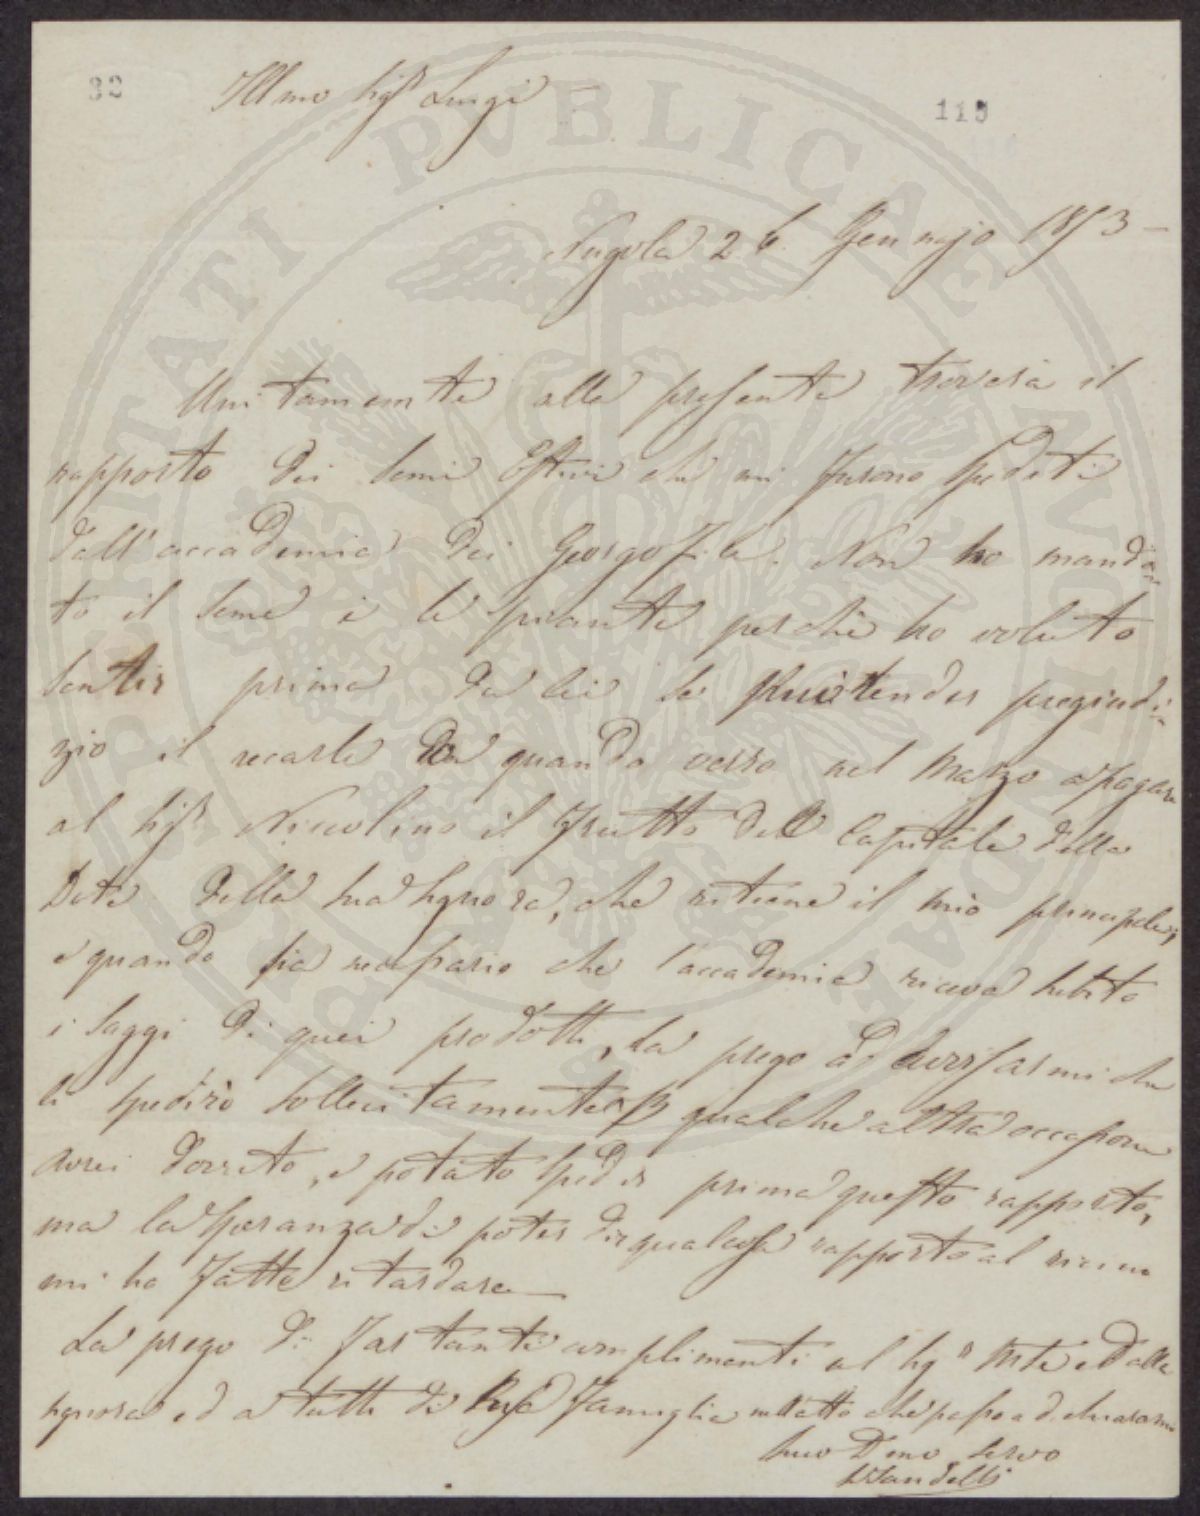 32
115
Illmo Sigr Luigi
Nugola 26 Gennajo 1853 -
Unitamente alla presente troverà il
rapporto dei semi Estivi che mi furono spediti
dall'accademia dei Georgofili. Non ho manda=
to il seme e le piante perchè ho voluto
sentir prima da lei se può intender pregiudi=
zio il recarle da quando verrò nel Marzo a pagare
al Sigr Niccolino il frutto del Capitale della
Dote della sua Signora, che ritiene il mio principale;
e quando sia necessario che l'accademia riceva subito
i saggi di quei prodotti, la prego ad avvisarmi che
li spedirò sollecitamente qualche altra occasione
Avrei dovuto, e potuto spedir prima questo rapporto,
ma la speranza di poter dir qualcosa rapporto al ricino
mi ha fatto ritardare
La prego di far tanti complimenti al Sigr Mte ed alla
Signora ed a tutti di Sua Famiglia nell'atto che passo a dichiararmi
Suo Dmo Servo
PVBLICAE